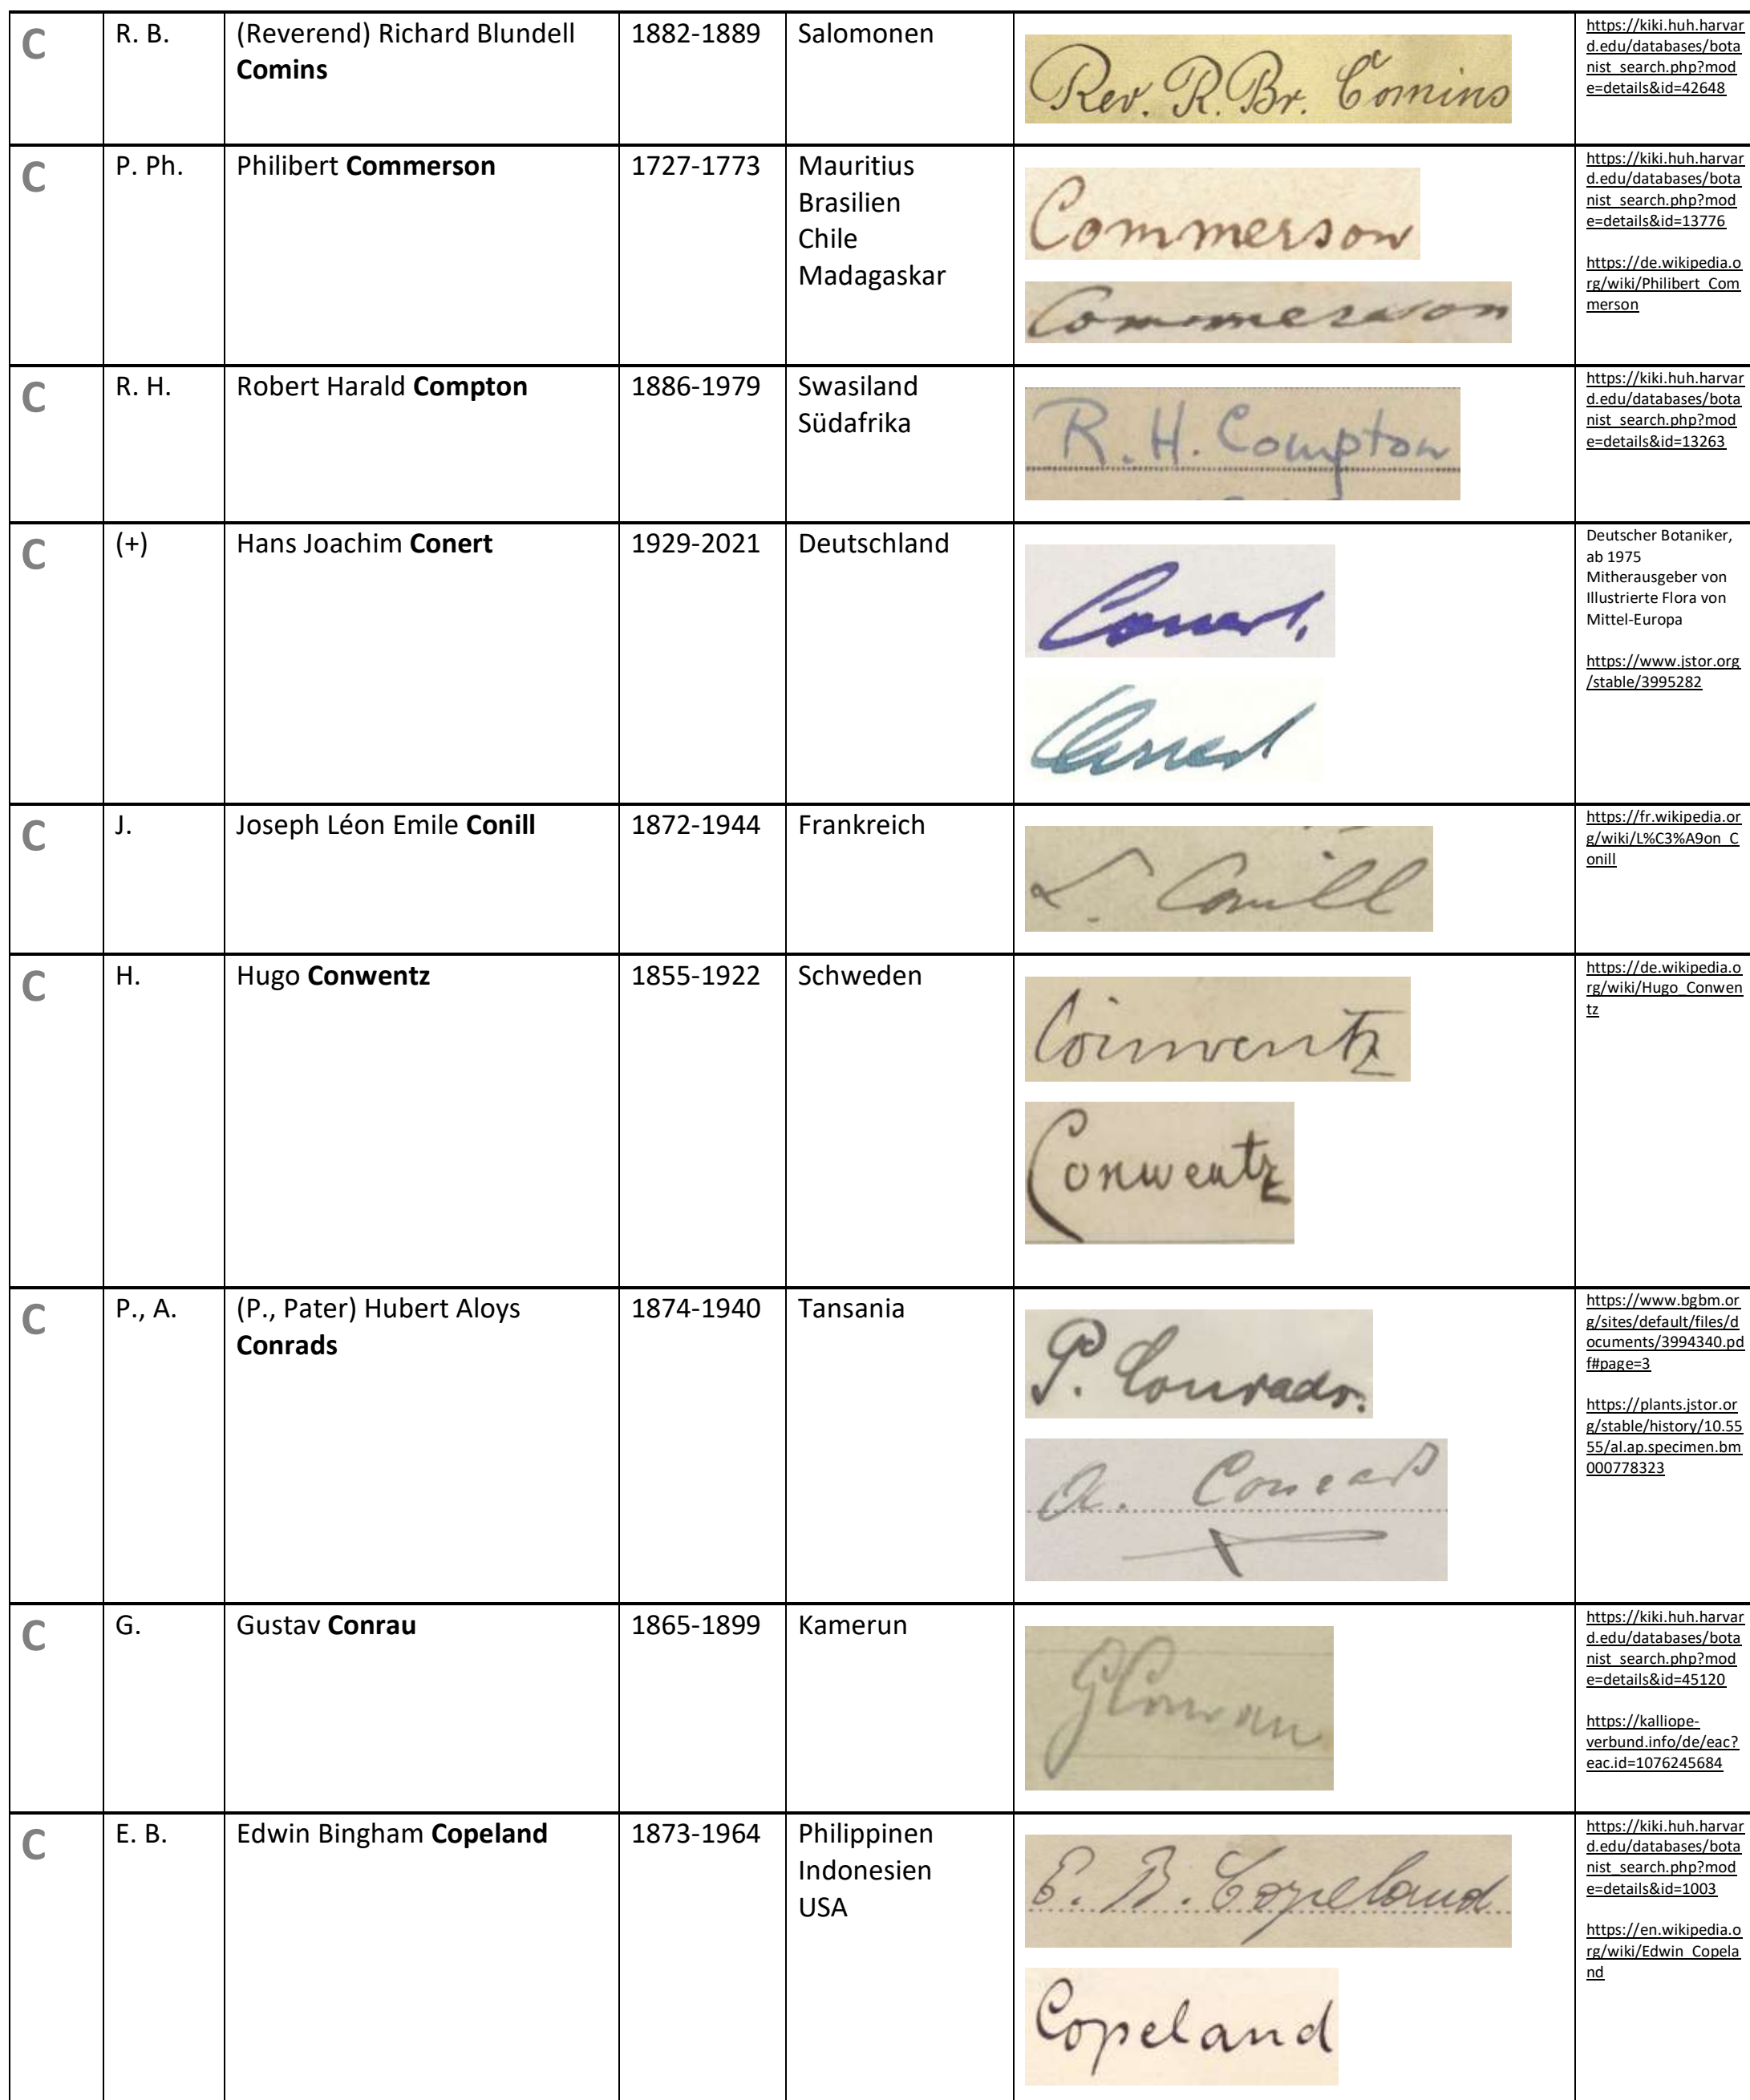 C
R. B.
(Reverend) Richard Blundell
Comins
1882-1889
Salomonen
Rev. R. Br. Comins
https://kiki.huh.harvar
d.edu/databases/bota
nist_search.php?mod
e=details&id=42648
C
P. Ph.
Philibert Commerson
1727-1773
Mauritius
Brasilien
Chile
Madagaskar
Commerson
Commerson
https://kiki.huh.harvar
d.edu/databases/bota
nist_search.php?mod
e=details&id=13776
https://de.wikipedia.o
rg/wiki/Philibert_Com
merson
C
R. H.
Robert Harald Compton
1886-1979
Swasiland
Südafrika
R. H. Compton
https://kiki.huh.harvar
d.edu/databases/bota
nist_search.php?mod
e=details&id=13263
C
(+)
Hans Joachim Conert
1929-2021
Deutschland
Conert.
Conert
Deutscher Botaniker,
ab 1975
Mitherausgeber von
Illustrierte Flora von
Mittel-Europa
https://www.jstor.org
/stable/3995282
C
J.
Joseph Léon Emile Conill
1872-1944
Frankreich
L. Conill
https://fr.wikipedia.or
g/wiki/L%C3%A9on_C
onill
C
H.
Hugo Conwentz
1855-1922
Schweden
Conwentz
Conwentz
https://de.wikipedia.o
rg/wiki/Hugo_Conwen
tz
C
P., A.
(P., Pater) Hubert Aloys
Conrads
1874-1940
Tansania
P. Conrads.
A. Conrads
https://www.bgbm.or
g/sites/default/files/d
ocuments/3994340.pd
f#page=3
https://plants.jstor.or
g/stable/history/10.55
55/al.ap.specimen.bm
000778323
C
G.
Gustav Conrau
1865-1899
Kamerun
G Conrau
https://kiki.huh.harvar
d.edu/databases/bota
nist_search.php?mod
e=details&id=45120
https://kalliope-
verbund.info/de/eac?
eac.id=1076245684
C
E. B.
Edwin Bingham Copeland
1873-1964
Philippinen
Indonesien
USA
E. B. Copeland
Copeland
https://kiki.huh.harvar
d.edu/databases/bota
nist_search.php?mod
e=details&id=1003
https://en.wikipedia.o
rg/wiki/Edwin_Copela
nd